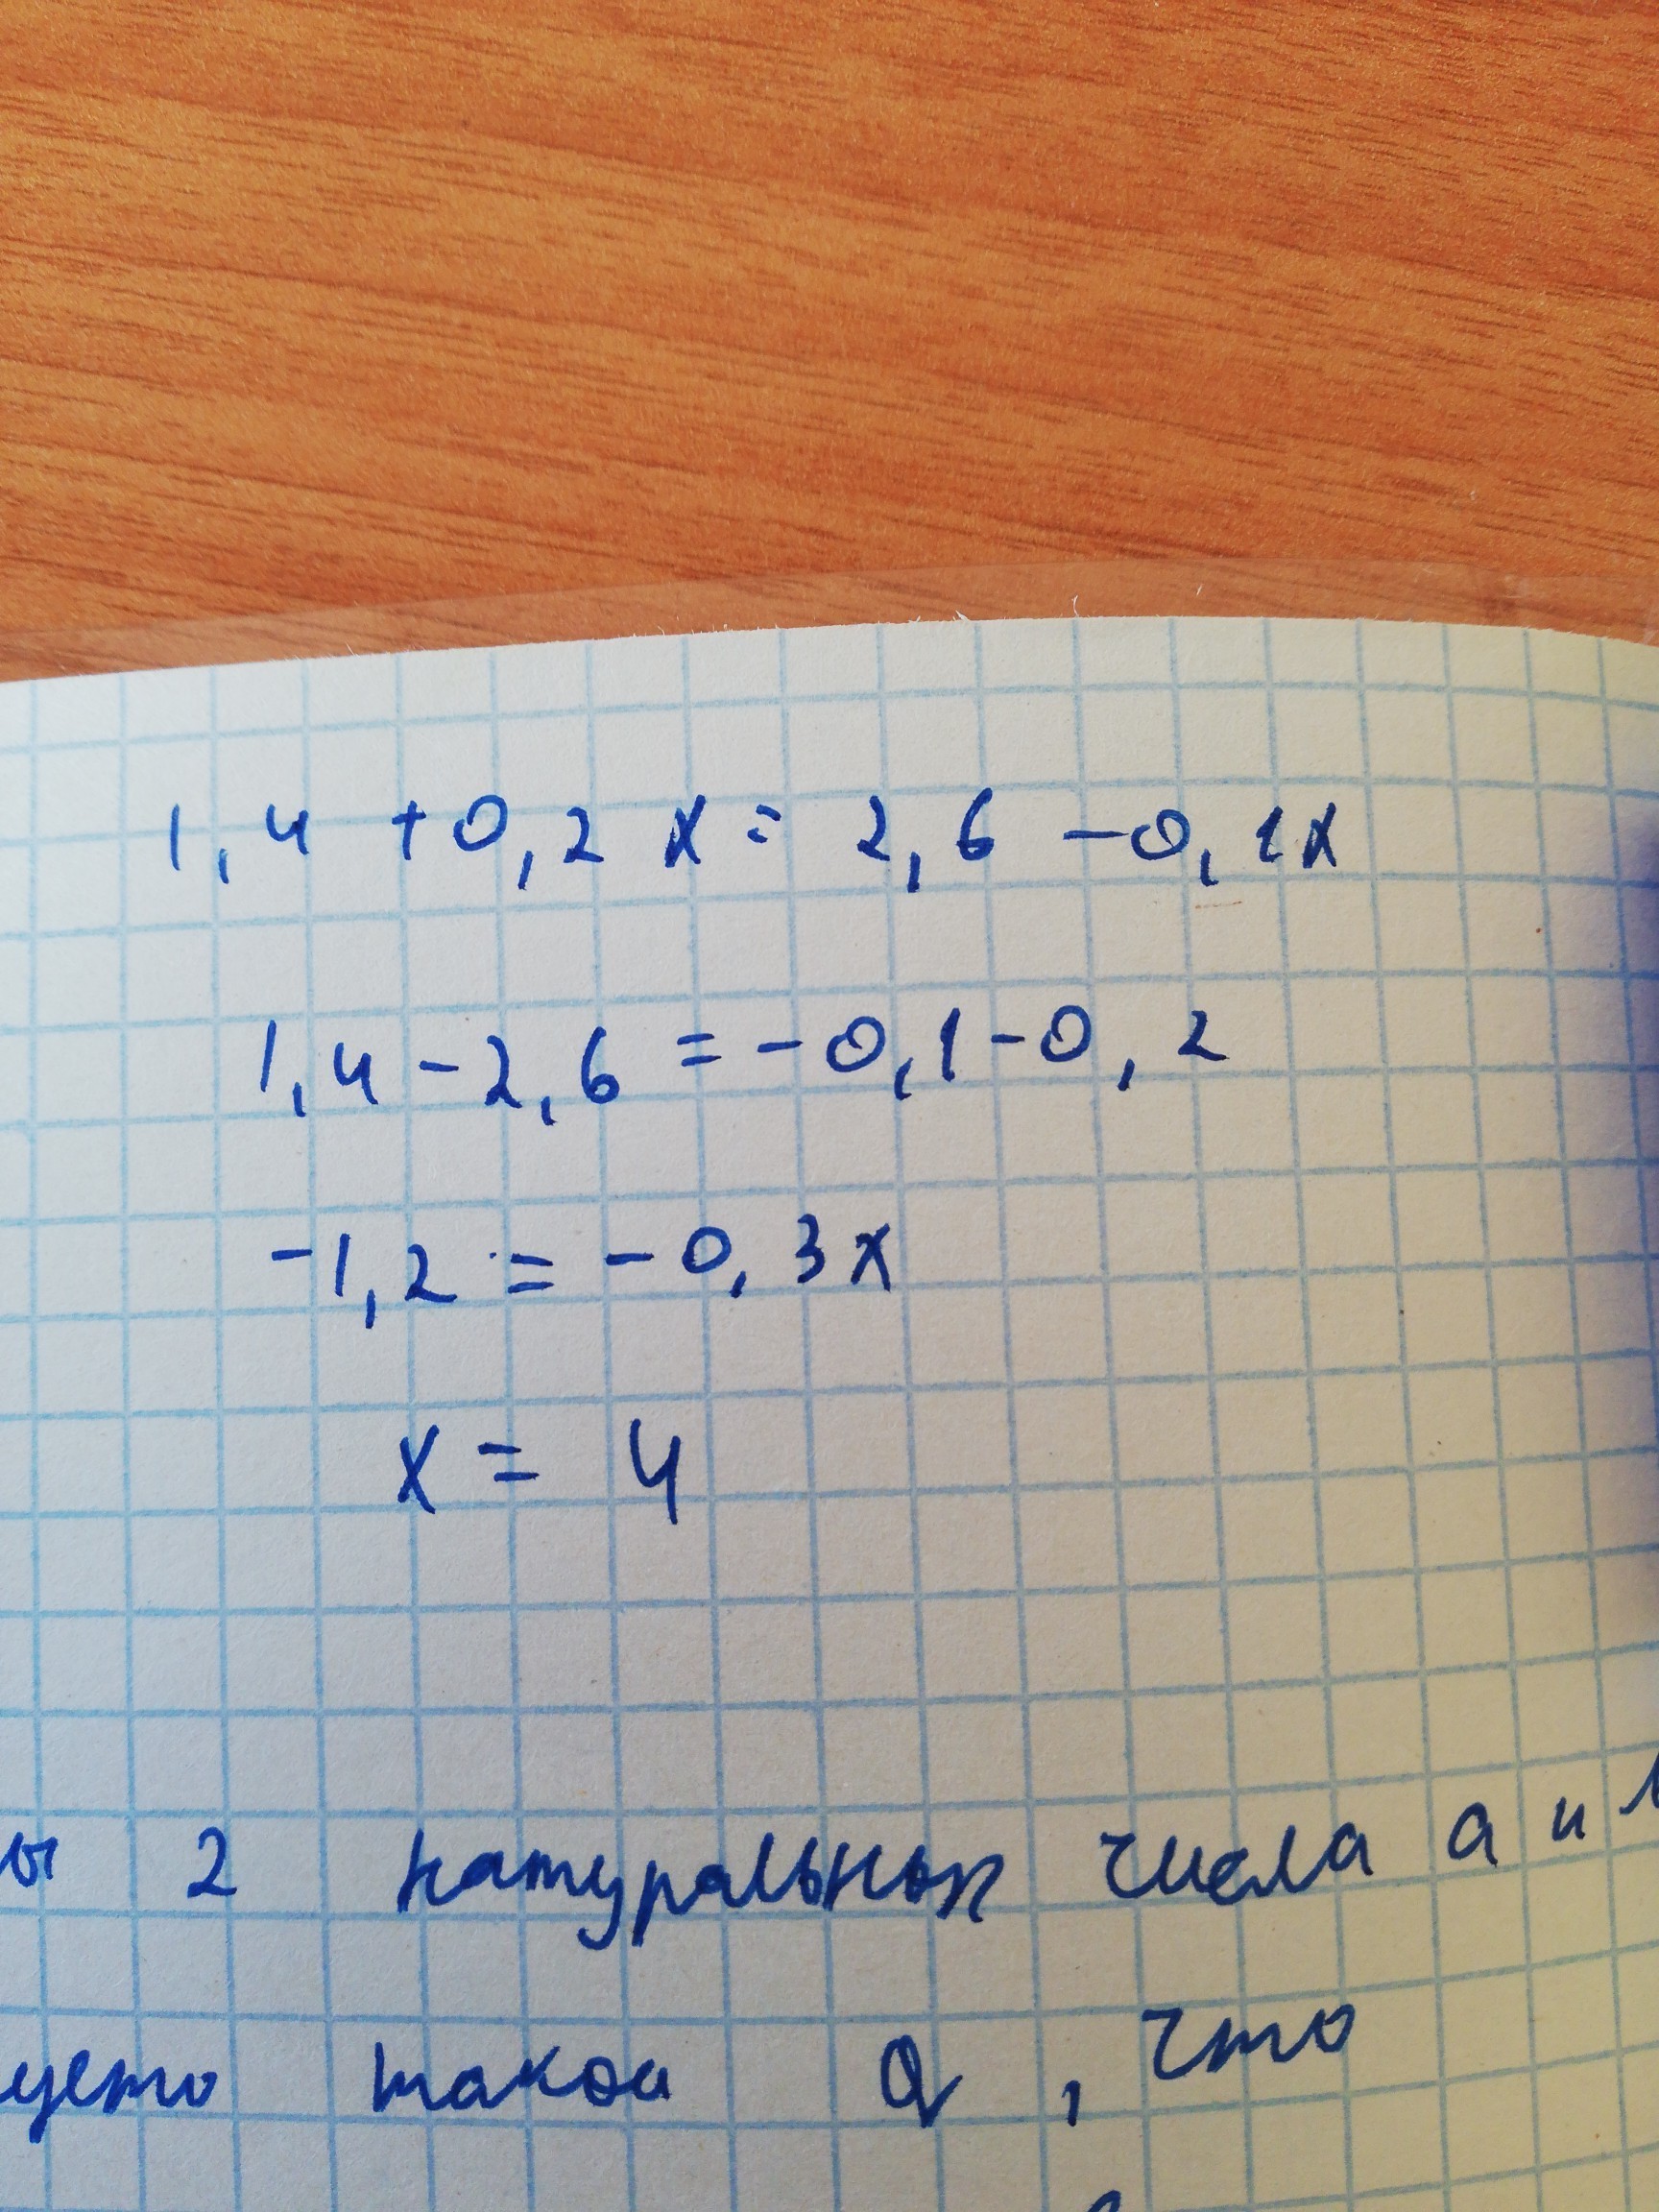 1,4 + 0,2 x = 2,6 - 0,1x
1,4 - 2,6 = - 0,1 - 0,2
-1,2 = - 0,3x
x = 4
2 натуральных числа a и
такой Q, что